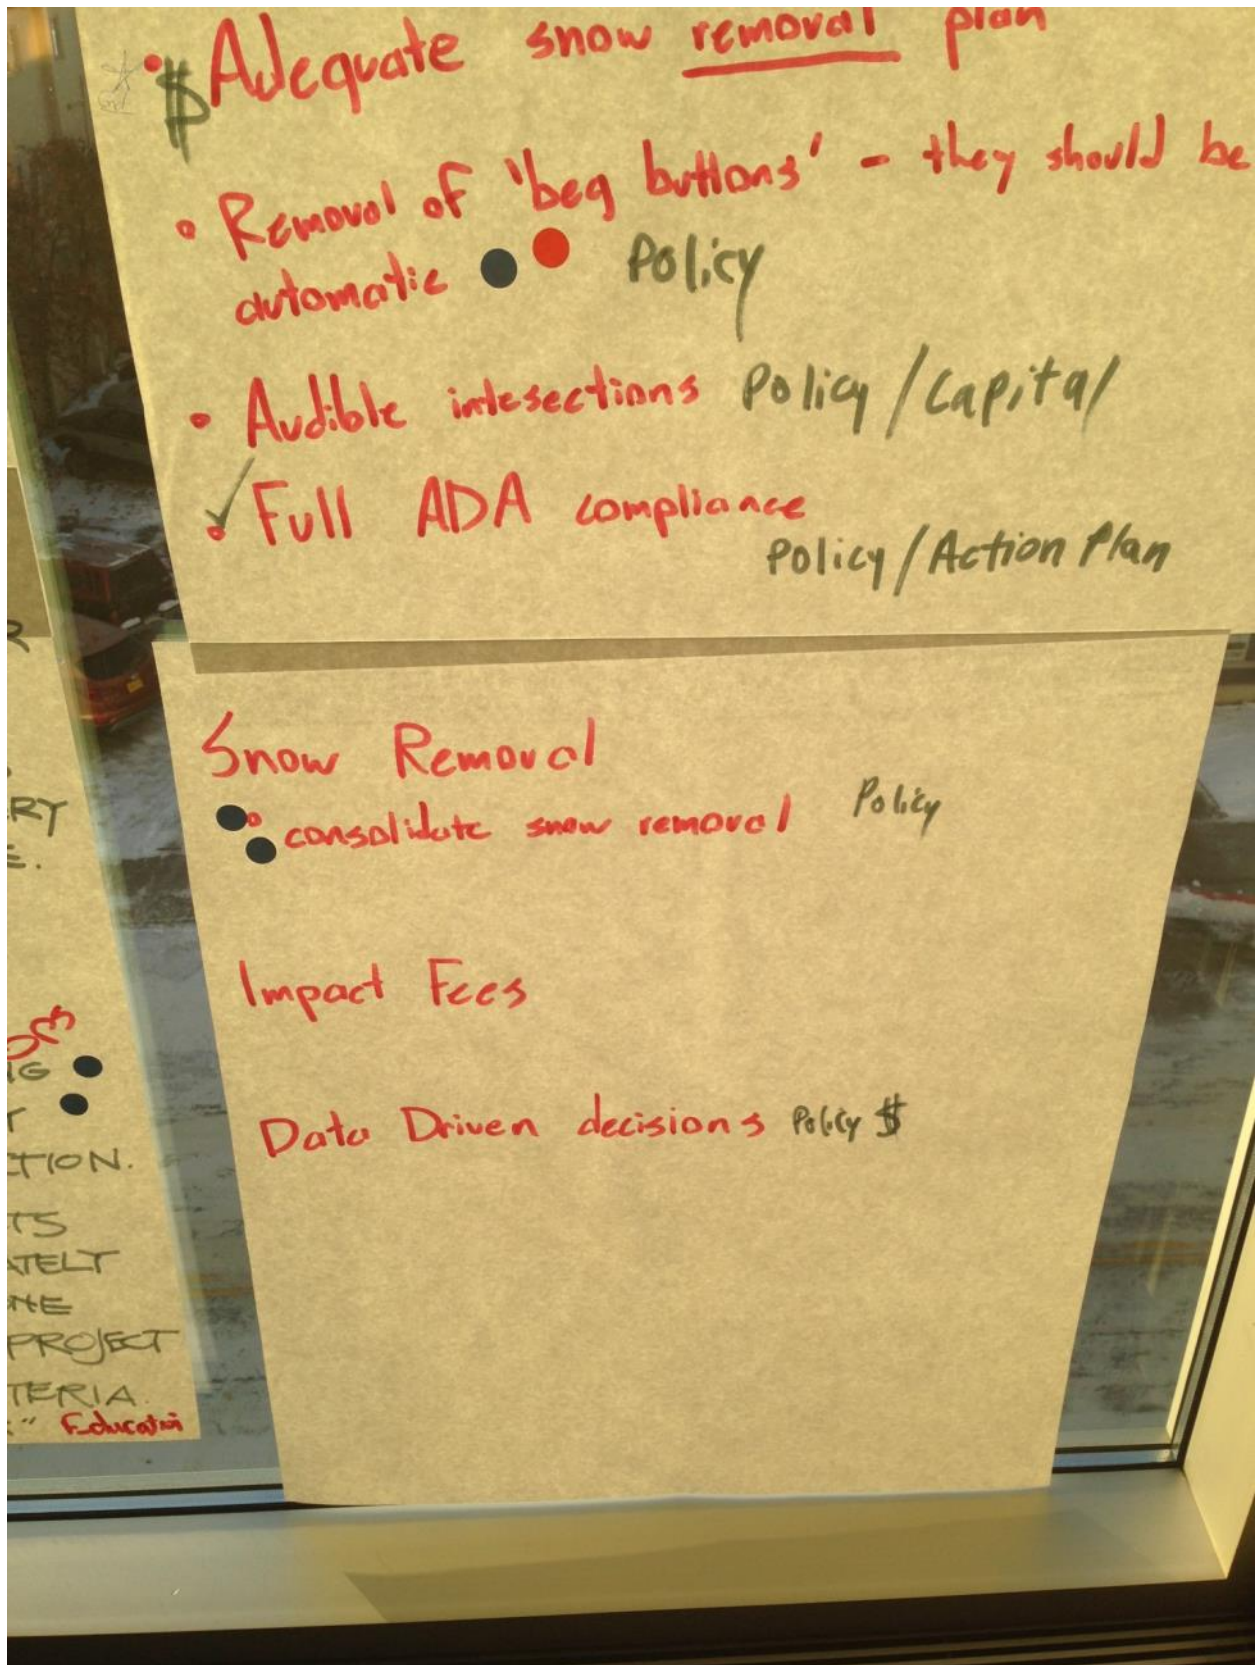 • $ Adequate snow removal plan
• Removal of 'beg buttons' - they should be
automatic Policy
• Audible intesections Policy / Capital
✓
• Full ADA compliance
Policy / Action Plan
Snow Removal
• consolidate snow removal Policy
Impact Fees
Data Driven decisions Policy $
R
RY
E.
G
T
CTION.
TS
ATELY
PROJECT
TERIA.
" Education